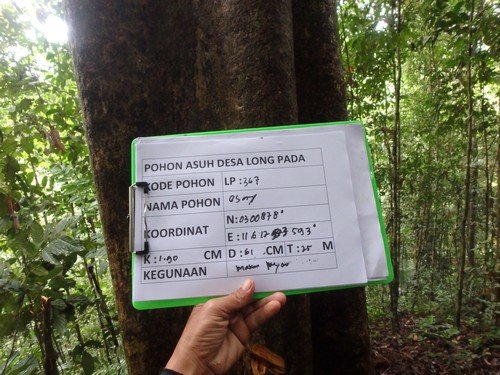 POHON ASUH DESA LONG PADA
KODE POHON LP : 367
NAMA POHON
KOORDINAT N : 0300878°
E : 11612 593°
K : 1.90 CM D : 61 CM T : 25 M
KEGUNAAN